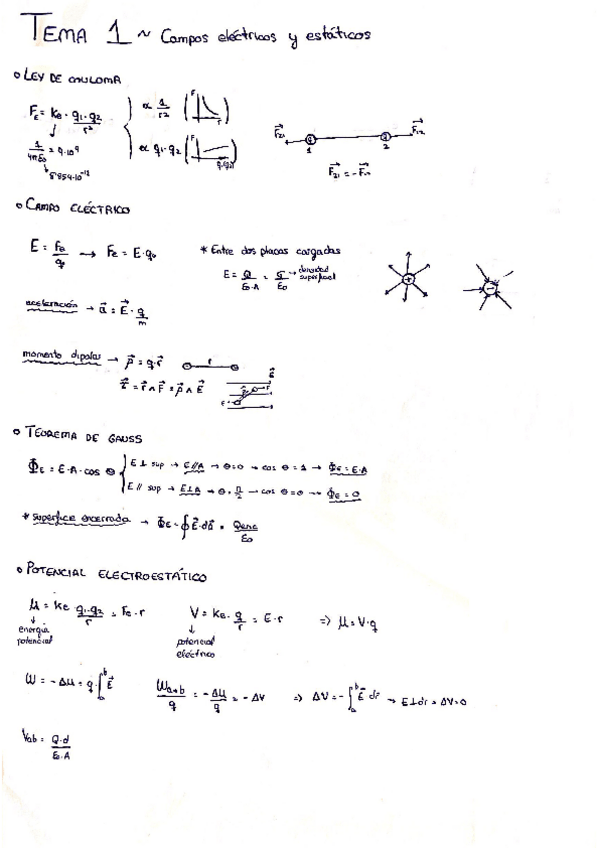 TEMA 1 ~ Campos eléctricos y estáticos
o LEY DE COULOMB
F_E = Ke · q1·q2 / r² } α 1/r² (F r)
1/4πε0 = 9·10⁹ α q1·q2 (F q1·q2)
8'854·10⁻¹²
F21 1 2 F12
F21 = -F12
o CAMPO ELÉCTRICO
E = Fe/q0 → Fe = E·q0
* Entre dos placas cargadas
E = Q/ε0·A = σ/ε0 → densidad superficial
+ -
aceleración → a = E · q/m
momento dipolar → p = q·r r
τ = r ∧ F = p ∧ E E
o TEOREMA DE GAUSS
ΦE = E·A·cos θ { E ⊥ sup → E//A → θ=0 → cos θ = 1 → ΦE = E·A
E // sup → E⊥A → θ = π/2 → cos θ = 0 → ΦE = 0
* superficie encerrada → ΦE = ∮ E·ds = Qenc/ε0
o POTENCIAL ELECTROESTÁTICO
μ = Ke · q1·q2 / r = Fe·r V = Ke · q/r = E·r ⇒ μ = V·q
energía potencial
potencial eléctrico
W = -Δμ = q·∫_a^b E Wa→b/q = -Δμ/q = -ΔV ⇒ ΔV = -∫_a^b E dr → E⊥dr = ΔV=0
Vab = Q·d / ε0·A